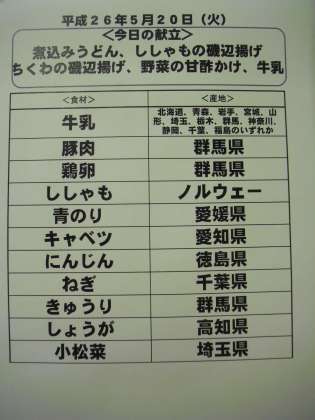 平成26年5月20日（火）
＜今日の献立＞
煮込みうどん、ししゃもの磯辺揚げ
ちくわの磯辺揚げ、野菜の甘酢かけ、牛乳
＜食材＞ ＜産地＞
牛乳 北海道、青森、岩手、宮城、山
形、埼玉、栃木、群馬、神奈川、
静岡、千葉、福島のいずれか
豚肉 群馬県
鶏卵 群馬県
ししゃも ノルウェー
青のり 愛媛県
キャベツ 愛知県
にんじん 徳島県
ねぎ 千葉県
きゅうり 群馬県
しょうが 高知県
小松菜 埼玉県